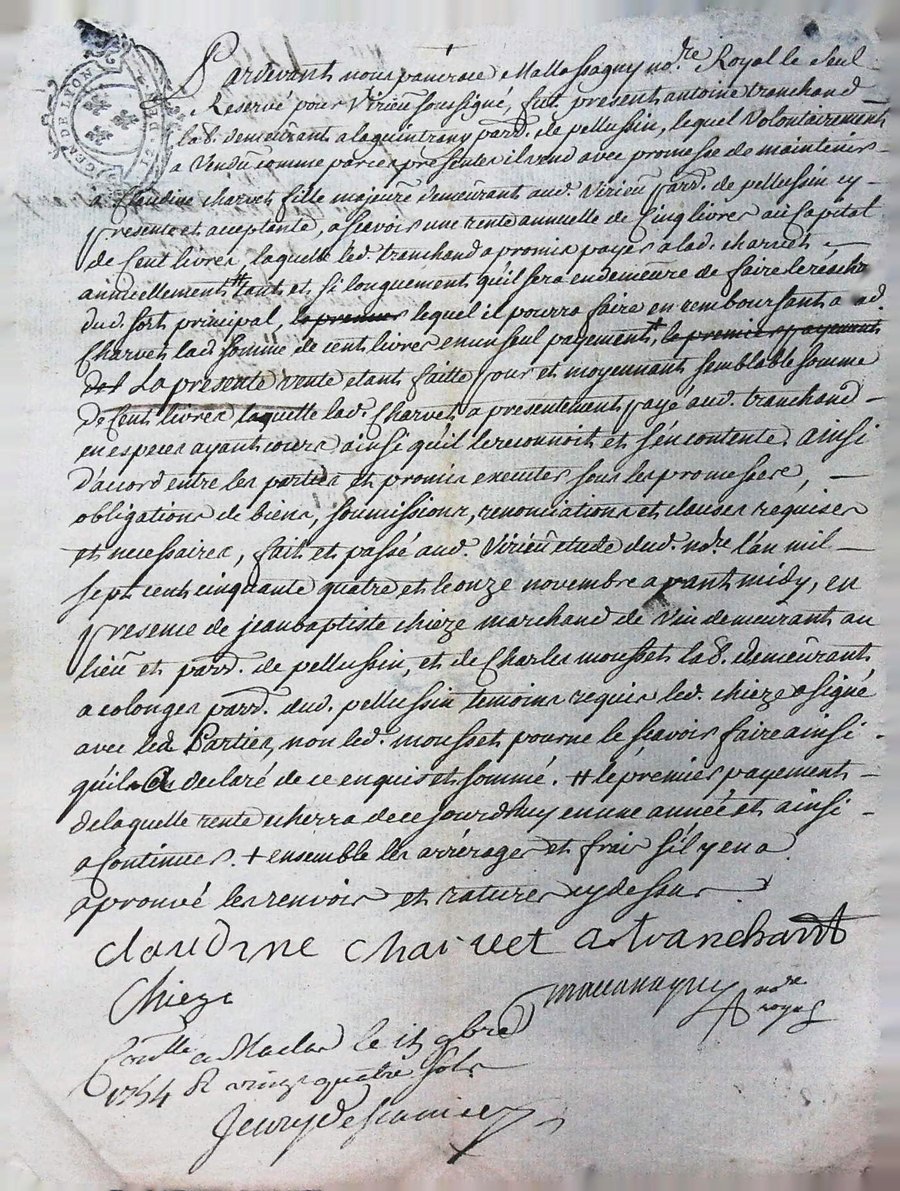 GEN. DE LYON
Pardevant nous pancrase Mallassagny no.re Royal le Seul
Reservé pour Virieu soussigné, fut present antoine tranchand
lab. demeurant a laquintrany parr. de pellussin, lequel Volontairement
a Vendu comme par ces presentes il vend avec promesse de maintenir
a Claudine charvet fille majeure demeurant aud. Virieu parr. de pellussin cy
presente et acceptante, a scavoir une rente annuelle de Cinq livres au Capital
de Cent livres, laquelle led. tranchand a promis payer a lad. charvet
annuellement # tant et si longuement qu'il sera en demeure de faire le reachr
dud. sort principal, le premier lequel il pourra faire en remboursant a ad.
Charvet lad somme de cent livres en un seul payement, + le premier payement
des La presente vente etant faitte pour et moyennant semblable somme
de Cent livres laquelle lad. Charvet a presentement payé aud. tranchand
en especes ayant cours ainsi qu'il le reconnoit et s'en contente. Ainsi
d'accord entre les parties et promis executer sous les promesses,
obligations de biens, soumissions, renonciations et clauses requises
et necessaires, fait et passé aud. Virieu etude dud. no.re l'an mil
sept cent cinquante quatre et le onze novembre avant midy, en
presence de jean baptiste chieze marchand de Vin demeurant au
lieu et parr. de pellussin, et de Charles mousset lab. demeurant
a colonges parr. dud. pellussin temoins requis led. chieze a signé
avec led Parties, non led. mousset pour ne le scavoir faire ainsi
qu'il a declaré de ce enquis et sommé. # le premier payement
de laquelle rente echerra de ce jourd'huy en une année et ainsi
a Continuer. + ensemble les arrérages et frais s'il y en a
aprouvé les renvois et ratures cy dessus
claudine charvet a tranchandt
Chieze
mallassagny no.re royal
Con.lle a Maclas le 15 9bre
1754 R vingt quatre sols